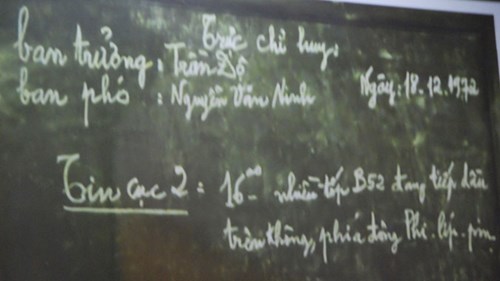 Trực chỉ huy:
ban trưởng: Trần Độ
ban phó : Nguyễn Văn Ninh
Ngày: 18.12.1972
Tin cục 2: 16°° nhiều tốp B52 đang tiếp dầu
trên không, phía đông Phi-líp-pin